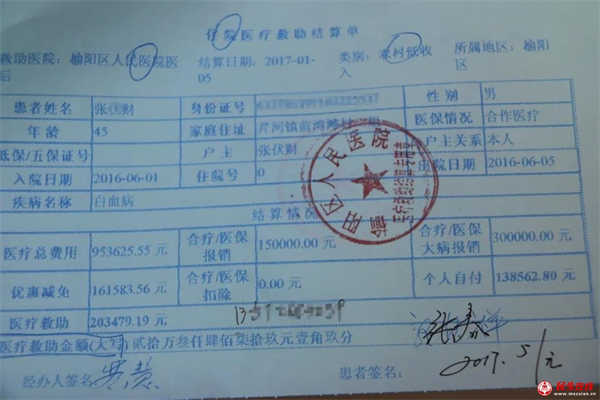 住院医疗救助结算单
救助医院: 榆阳区人民医院医
后
结算日期: 2017-01-
05
类别: 农村低收
入
所属地区: 榆阳
区
患者姓名 张伏财 身份证号 性 别 男
年 龄 45 家庭住址 芹河镇前湾滩村 医保情况 合作医疗
低保/五保证号 户 主 张伏财 户主关系 本人
入院日期 2016-06-01 住院号 0 出院日期 2016-06-05
疾病名称 白血病
结算情况
医疗总费用 953625.55 元 合疗/医保报销 150000.00 元 合疗/医保大病报销 300000.00 元
优惠减免 161583.56 元 合疗/医保扣除 0.00 元 个人自付 138562.80 元
医疗救助 203479.19 元
医疗救助金额(大写) 贰拾万叁仟肆佰柒拾玖元壹角玖分
经办人签名: 患者签名:
2017. 5/元
榆阳区人民医院